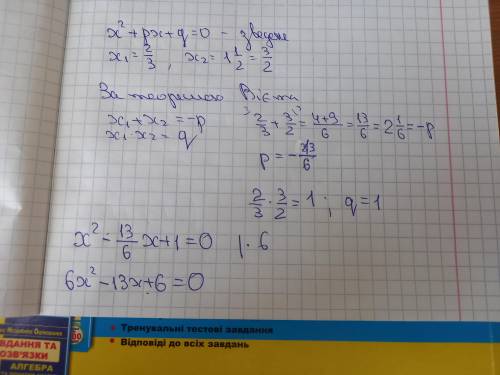 x² + px + q = 0 - зведене
x₁ = 2/3, x₂ = 1 1/2 = 3/2
За теоремою Вієта
x₁ + x₂ = -p
x₁ · x₂ = q
2/3 + 3/2 = (4+9)/6 = 13/6 = 2 1/6 = -p
p = -13/6
2/3 · 3/2 = 1 ; q = 1
x² - 13/6 x + 1 = 0 | · 6
6x² - 13x + 6 = 0
Тренувальні тестові завдання
Відповіді до всіх завдань
АЛГЕБРА